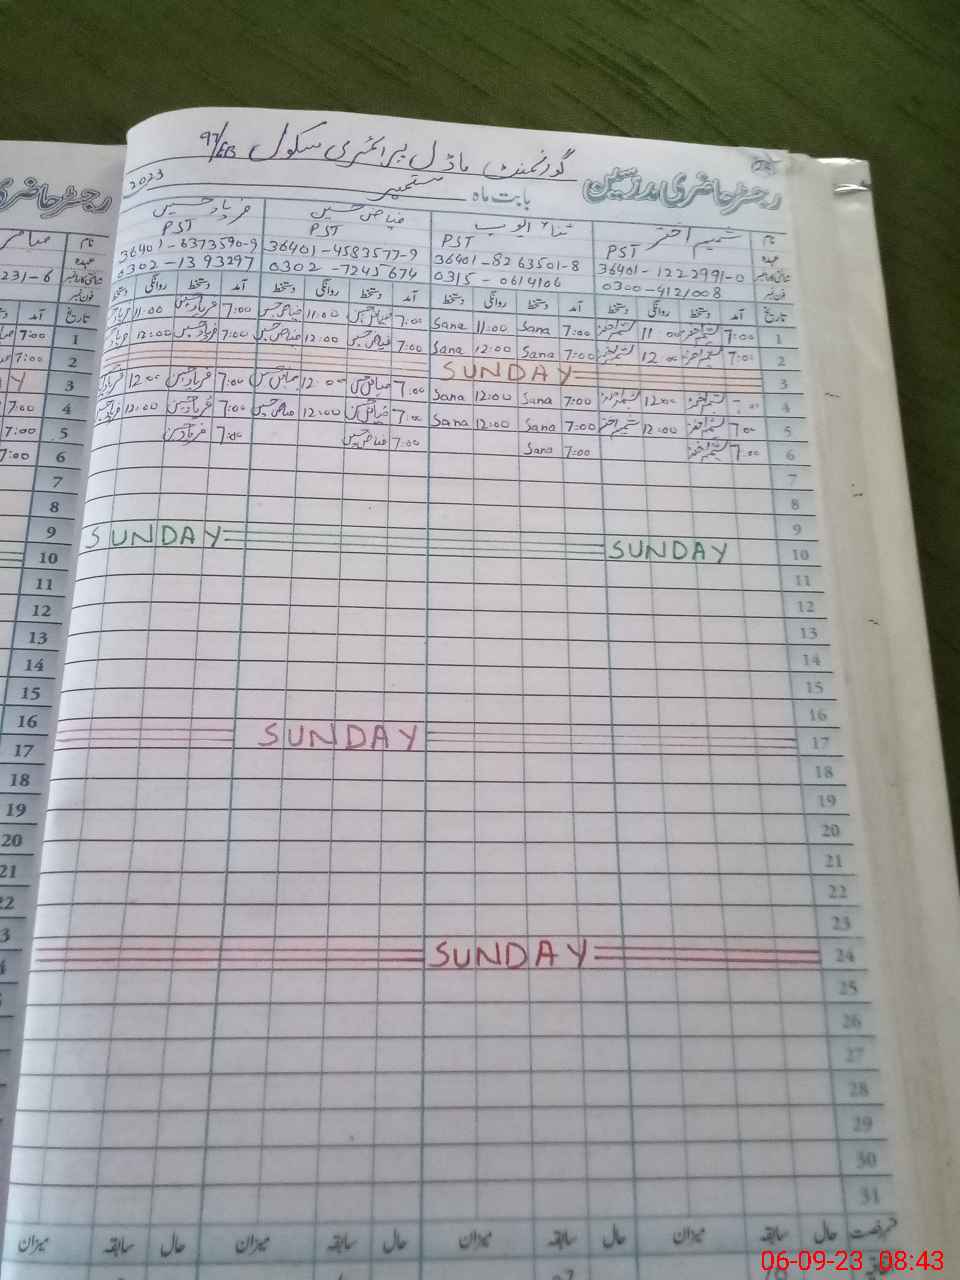 رجسٹر حاضری مدرسین
گورنمنٹ ماڈل پرائمری سکول 97/EB
بابت ماہ ستمبر 2023
نام شمیم اختر ثناء ایوب فیاض حسین
عہدہ PST PST PST PST
شناختی کارڈ نمبر 36401-1222991-0 36401-8263501-8 36401-4583577-9 36401-6373590-9
فون نمبر 0300-4121008 0315-0614106 0302-7245674 0302-1393297
تاریخ آمد دستخط روانگی دستخط آمد دستخط روانگی دستخط آمد دستخط روانگی دستخط آمد دستخط روانگی دستخط
1 7:00 شمیم اختر 11:00 شمیم اختر 7:00 Sana 11:00 Sana 7:00 فیاض حسین 11:00 فیاض حسین 7:00 11:00
2 7:00 شمیم اختر 12:00 شمیم اختر 7:00 Sana 12:00 Sana 7:00 فیاض حسین 12:00 فیاض حسین 7:00 12:00
3 SUNDAY
4 7:00 شمیم اختر 12:00 شمیم اختر 7:00 Sana 12:00 Sana 7:00 فیاض حسین 12:00 فیاض حسین 7:00 12:00
5 7:00 شمیم اختر 12:00 شمیم اختر 7:00 Sana 12:00 Sana 7:00 فیاض حسین 12:00 فیاض حسین 7:00 12:00
6 7:00 شمیم اختر 7:00 Sana 7:00 فیاض حسین 7:00
7
8
9
10 SUNDAY SUNDAY
11
12
13
14
15
16
17 SUNDAY
18
19
20
21
22
23
24 SUNDAY
25
26
27
28
29
30
31
حال سابقہ میزان حال سابقہ میزان حال سابقہ میزان حال سابقہ میزان
رجسٹر حاضری
نام
عہدہ
شناختی کارڈ نمبر 231-6
فون نمبر
تاریخ آمد
1 7:00
2 7:00
3 Y
4 7:00
5 7:00
6 7:00
7
8
9
10
11
12
13
14
15
16
17
18
19
20
21
22
06-09-23 08:43